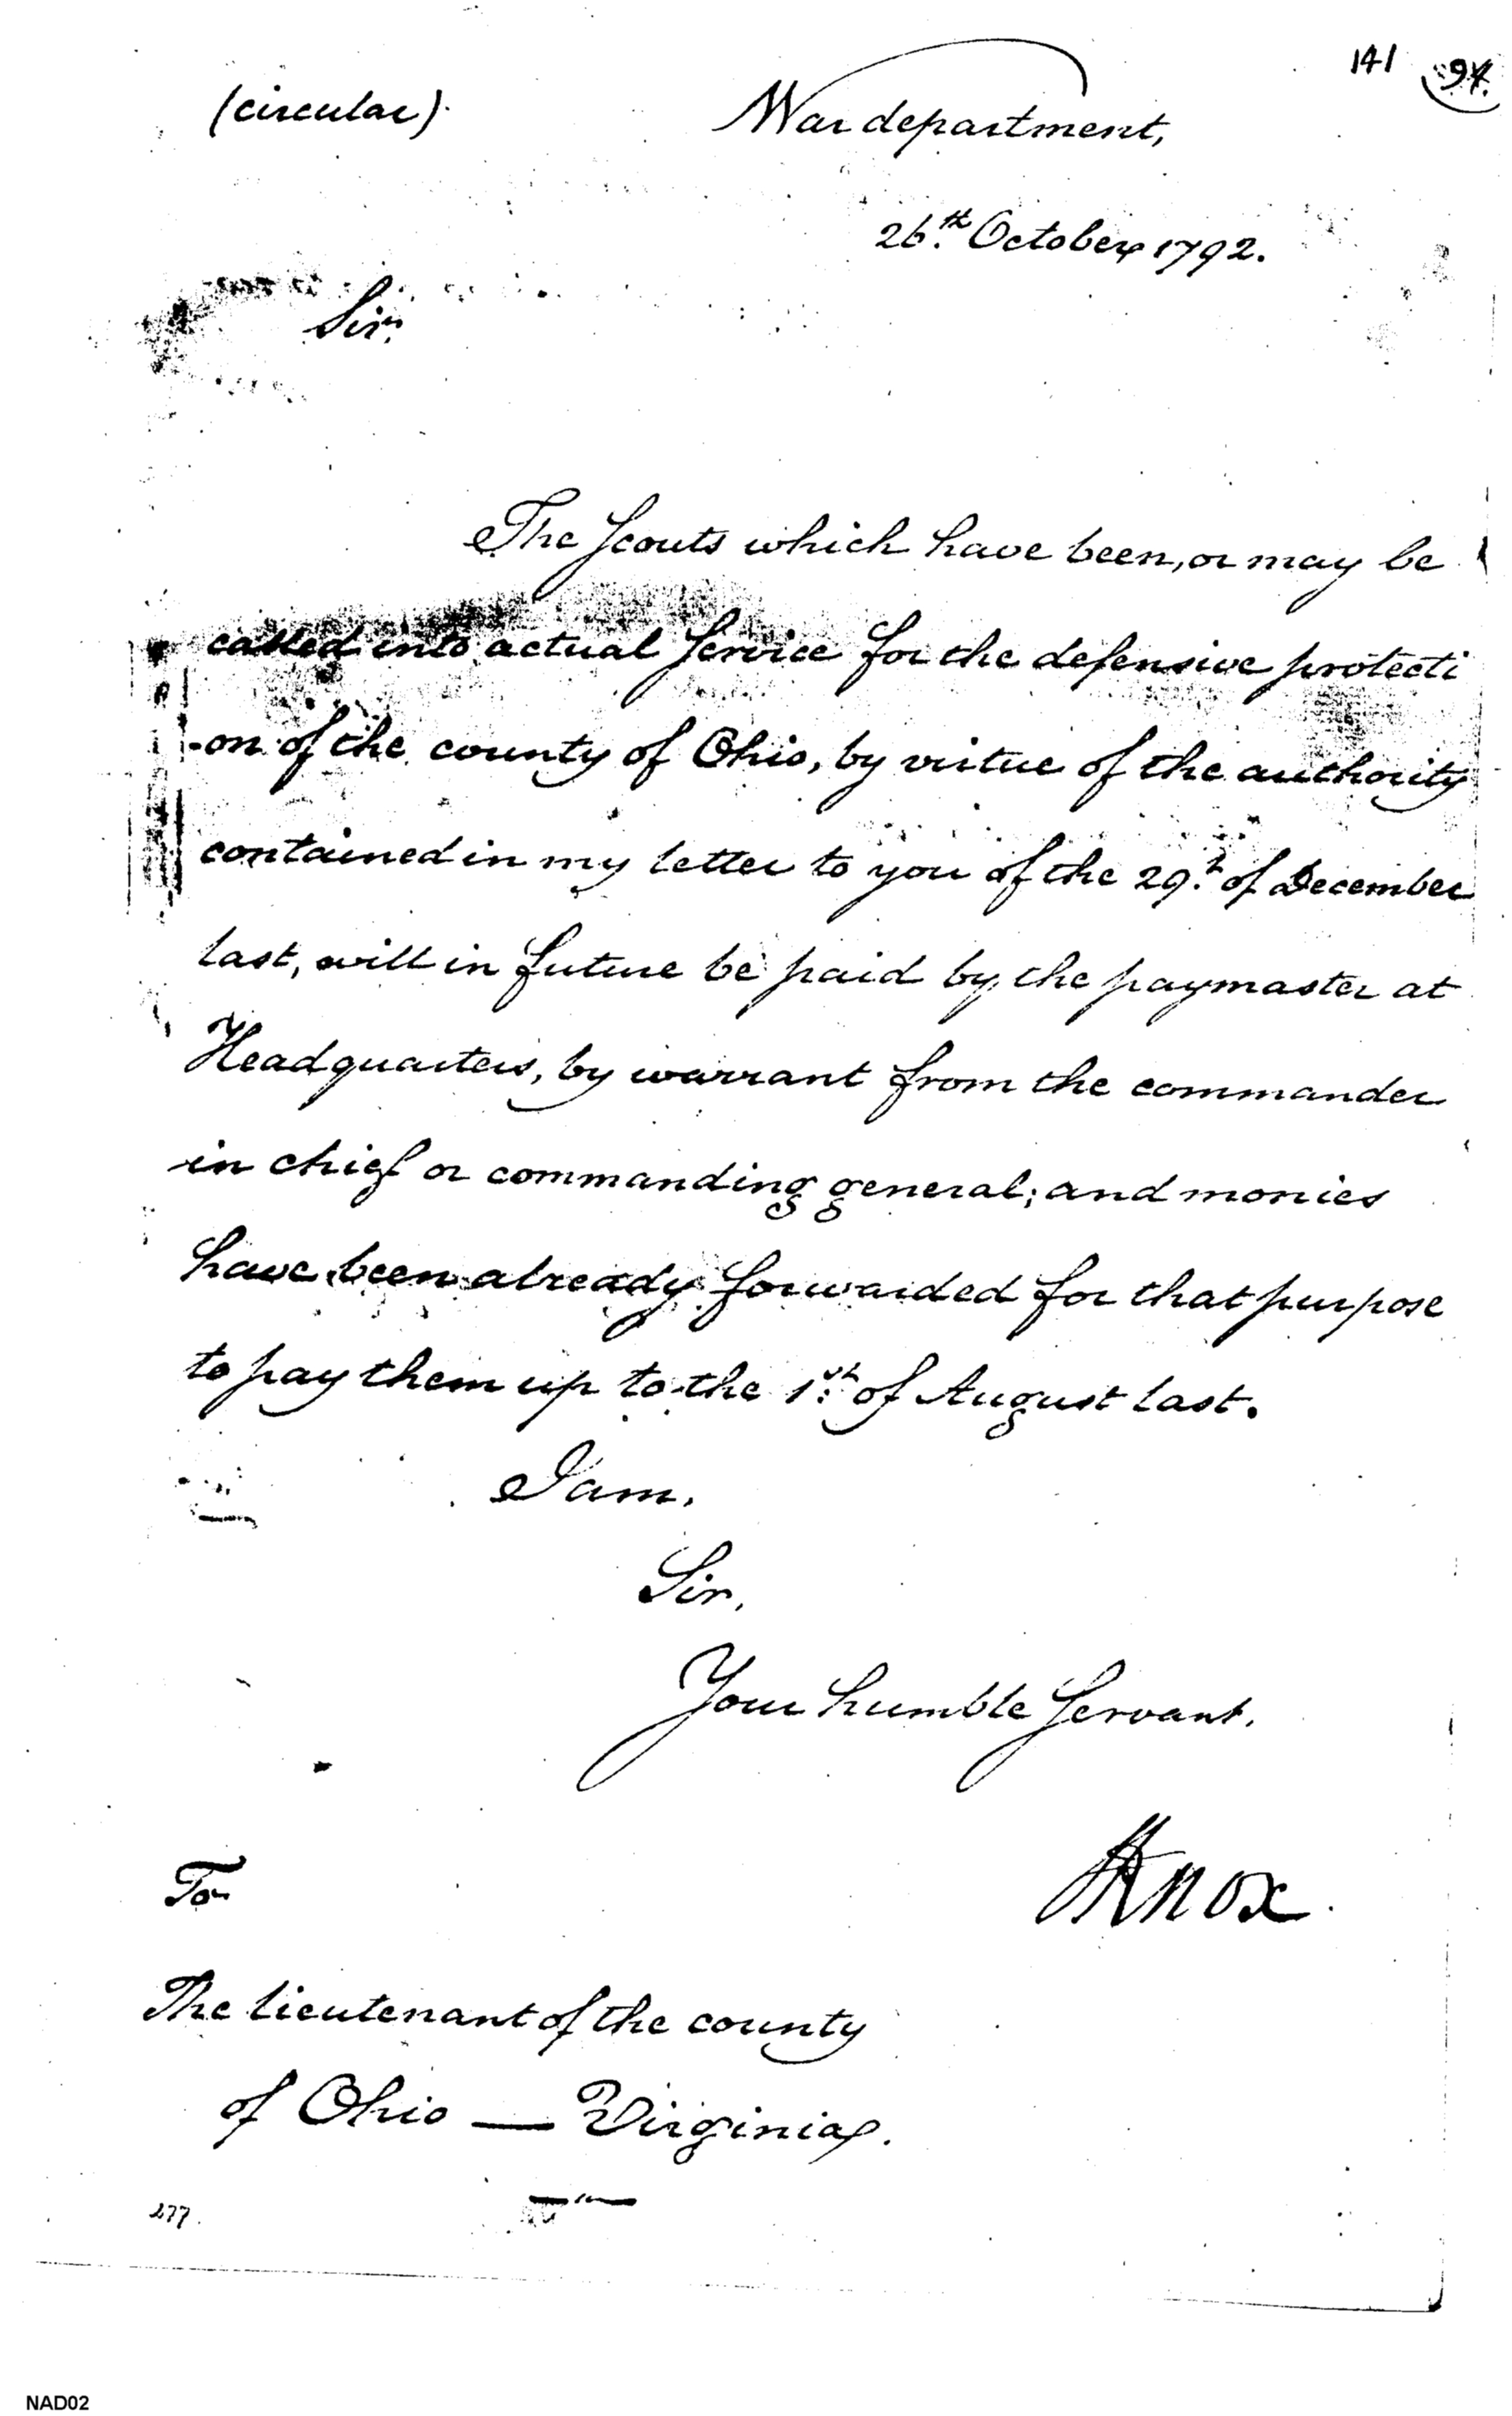 141 94
(circular).
War department,
26.th October 1792.
Sir,
The Scouts which have been, or may be
called into actual Service for the defensive protecti
-on of the county of Ohio, by virtue of the authority
contained in my letter to you of the 29.th of December
last, will in future be paid by the paymaster at
Head quarters, by warrant from the commander
in chief or commanding general; and monies
have been already forwarded for that purpose
to pay them up to the 1.st of August last.
I am,
Sir,
Your humble Servant,
HKnox.
To
The lieutenant of the county
of Ohio — Virginia.
277.
NAD02